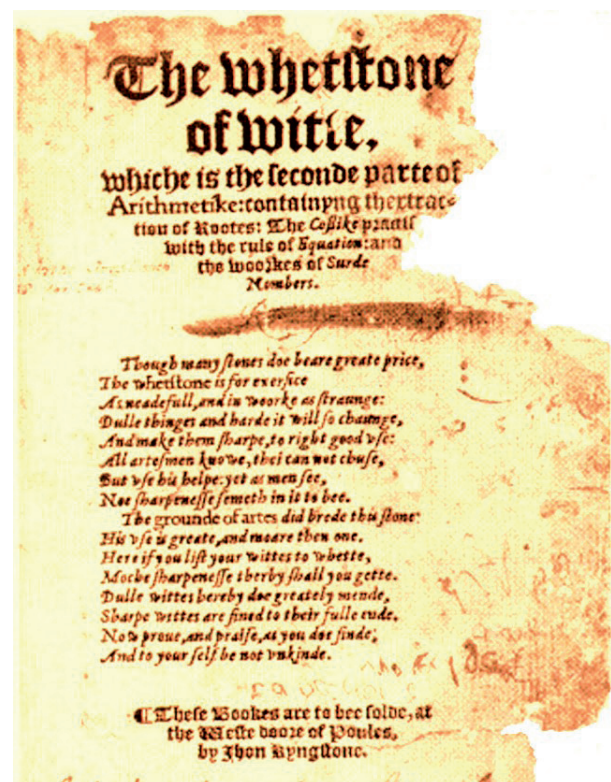 The whetſtone
of witte,
whiche is the ſeconde parte of
Arithmetike: containyng thextrac-
tion of Rootes: The Coſsike practiſe
with the rule of Equation: and
the woorkes of Surde
Nombers.
Though many ſtones doe beare greate price,
The whetſtone is for exerſice
As neadefull, and in woorke as ſtraunge:
Dulle thinges and harde it will ſo chaunge,
And make them ſharpe, to right good vſe:
All arteſmen knowe, thei can not chuſe,
But vſe his helpe: yet as men ſee,
Noe ſharpeneſſe ſemeth in it to bee.
The grounde of artes did brede this ſtone:
His vſe is greate, and moare then one.
Here if you liſt your wittes to whette,
Moche ſharpeneſſe therby ſhall you gette.
Dulle wittes hereby doe greately mende,
Sharpe wittes are fined to their fulle ende.
Now proue, and praiſe, as you doe finde,
And to your ſelf be not vnkinde.
¶ Theſe Bookes are to bee ſolde, at
the Weſte doore of Poules,
by Jhon Kyngſtone.